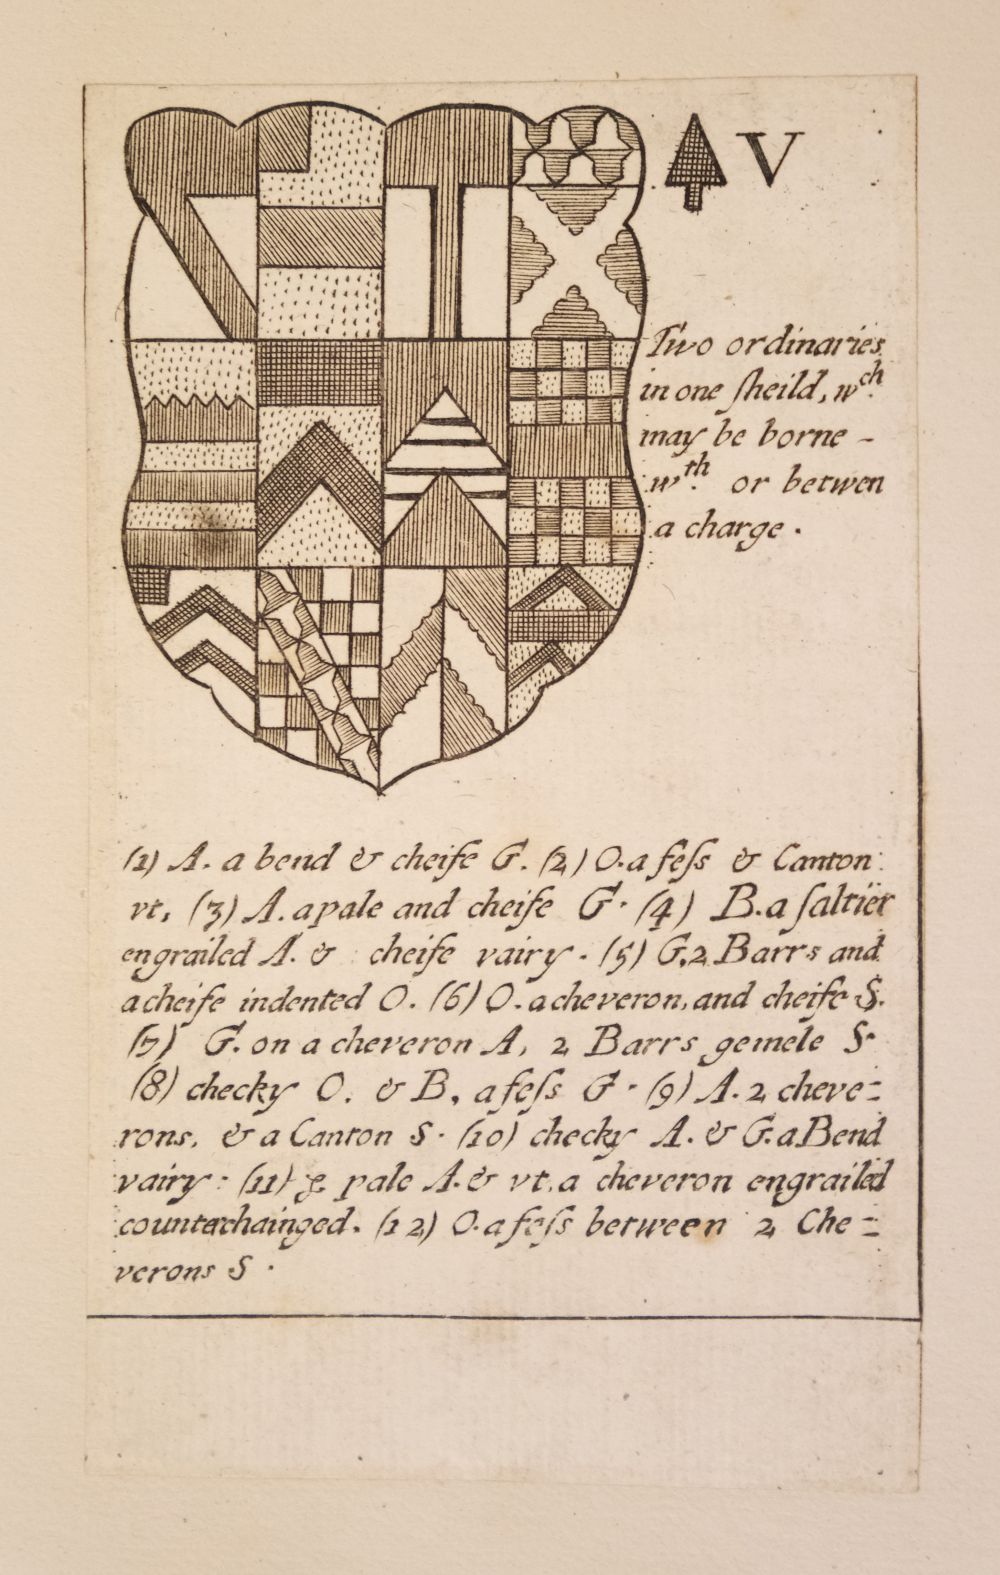 V
Two ordinaries
in one ſheild, wch.
may be borne -
wth. or betwen
a charge .
(1) A. a bend & cheife G. (2) O. a feſs & Canton
vt, (3) A. a pale and cheife G. (4) B. a ſaltier
engrailed A. & cheife vairy . (5) G, 2 Barrs and
a cheife indented O. (6) O. a cheveron, and cheife S.
(7) G. on a cheveron A, 2 Barrs gemele S.
(8) checky O. & B, a feſs G . (9) A. 2 cheve=
rons, & a Canton S . (10) checky A. & G. a Bend
vairy : (11) ꝑ pale A. & vt. a cheveron engrailed
counterchainged. (12) O. a feſs between 2 Che=
verons S .